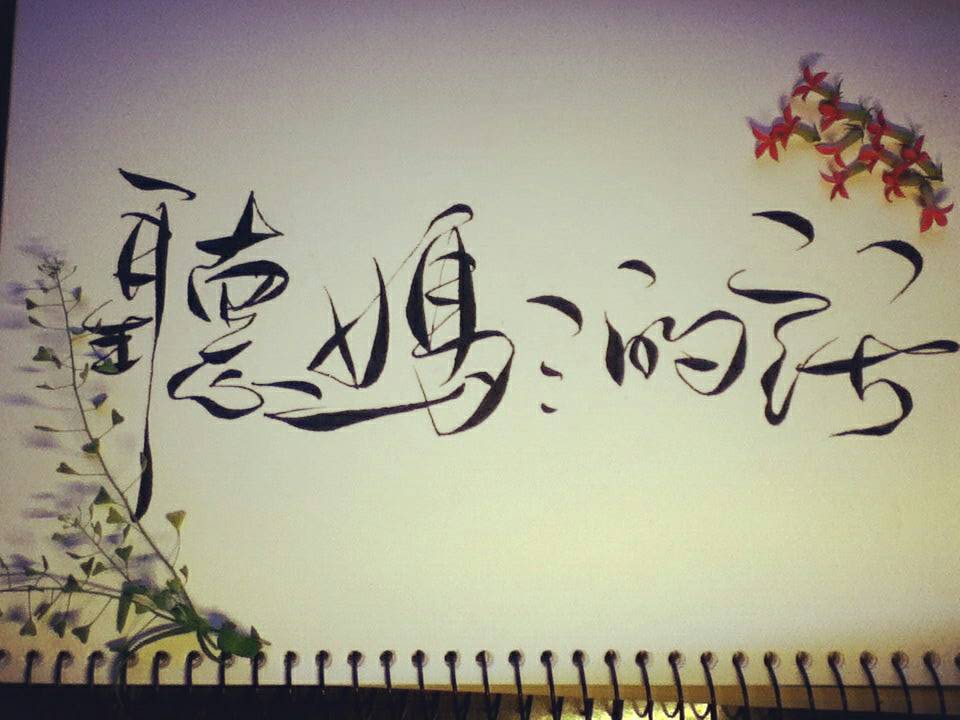 聽媽〻的話